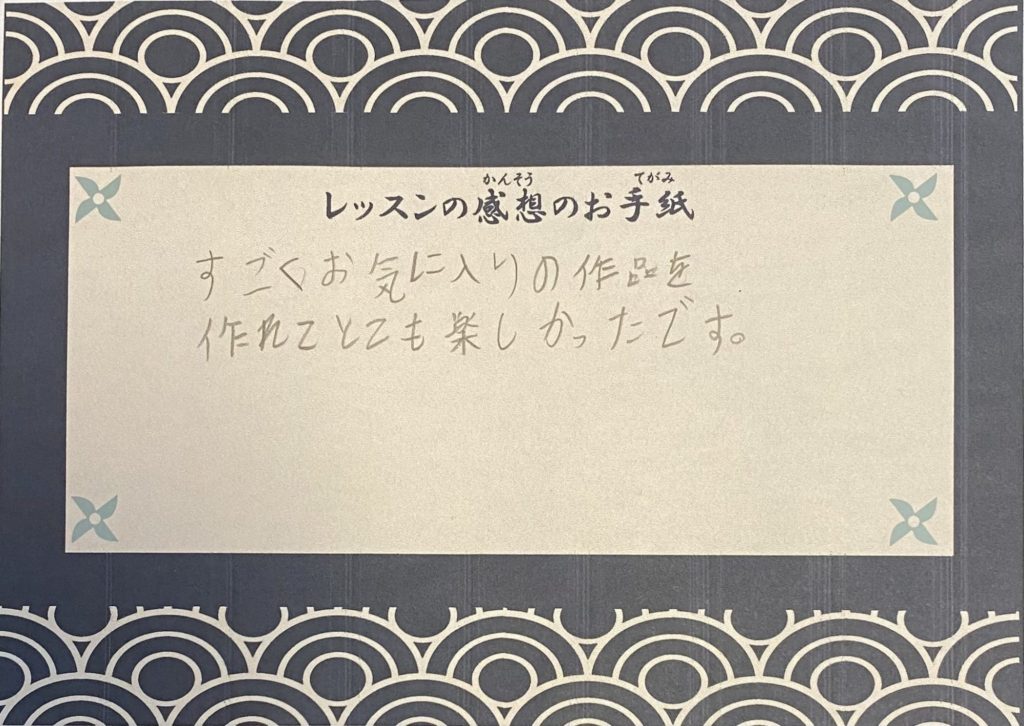 かんそう てがみ
レッスンの感想のお手紙
すごくお気に入りの作品を
作れてとても楽しかったです。